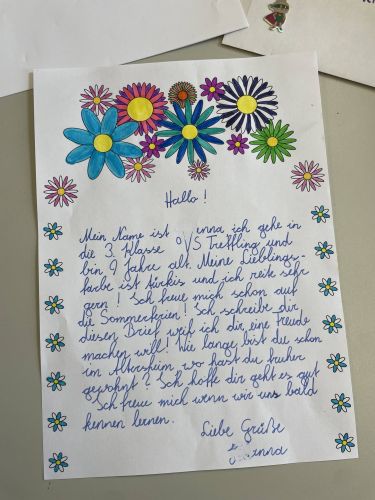 Hallo!
Mein Name ist enna ich gehe in
die 3. Klasse VS Treffling und
bin 9 Jahre alt. Meine Lieblings-
farbe ist türkis und ich reite sehr
gern! Ich freue mich schon auf
die Sommerferien! Ich schreibe dir
diesen Brief weif ich dir eine Freude
machen will! Wie lange bist du schon
im Altersheim wo hast du früher
gewohnt? Ich hoffe dir geht es gut
Ich freue mich wenn wir uns bald
kennen lernen.
Liebe Grüße